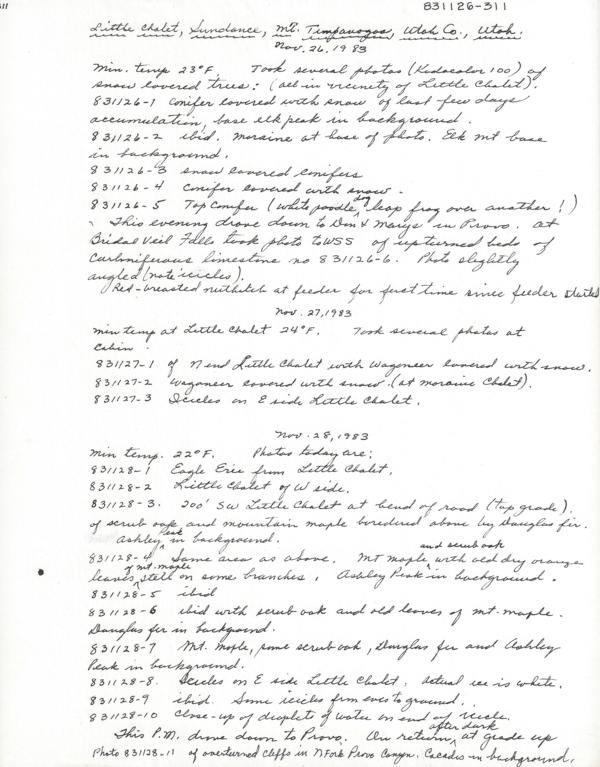 311
831126-311
Little Chalet, Sundance, Mt. Timpanogos, Utah Co., Utah.
Nov. 26, 1983
Min. temp 23°F. Took several photos (Kodacolor 100) of
snow covered trees: (all in vicinity of Little Chalet).
831126-1 Conifer covered with snow of last few days
accumulation, base elk peak in background.
831126-2 ibid. Moraine at base of photo. Elk Mt base
in background.
831126-3 snow covered conifers
831126-4 Conifer covered with snow.
831126-5 Top Conifer (white poodle dog leap frog over another!)
This evening drove down to Don & Marys in Provo. At
Bridal Veil Falls took photo to WSS of upturned beds of
Carboniferous limestone no 831126-6. Photo slightly
angled (note icicles).
Red-breasted nuthatch at feeder for first time since feeder started
Nov. 27, 1983
Min temp at Little Chalet 24°F. Took several photos at
Cabin.
831127-1 of N end Little Chalet with Wagoneer covered with snow.
831127-2 Wagoneer covered with snow. (at moraine Chalet).
831127-3 Icicles on E side Little Chalet.
Nov. 28, 1983
Min temp. 22°F. Photos today are:
831128-1 Eagle Eric from Little Chalet.
831128-2 Little Chalet of W side.
831128-3. 200' SW Little Chalet at bend of road (top grade).
of scrub oak and mountain maple bordered above by Douglas fir.
Ashley peak in background.
831128-4 Same area as above. Mt maple and scrub oak with old dry orange
leaves of mt. maple still on some branches. Ashley Peak in background.
831128-5 ibid
831128-6 ibid with scrub oak and old leaves of mt. maple.
Douglas fir in background.
831128-7 Mt. Maple, some scrub oak, Douglas fir and Ashley
Peak in background.
831128-8. Icicles on E side Little Chalet. Actual ice is white.
831128-9 ibid. Some icicles from eves to ground.
831128-10 Close-up of droplet of water on end of icicle.
This P.M. drove down to Provo. On return after dark at grade up
Photo 831128-11 of overturned cliffs in N Fork Provo Canyon. Cascades in background.